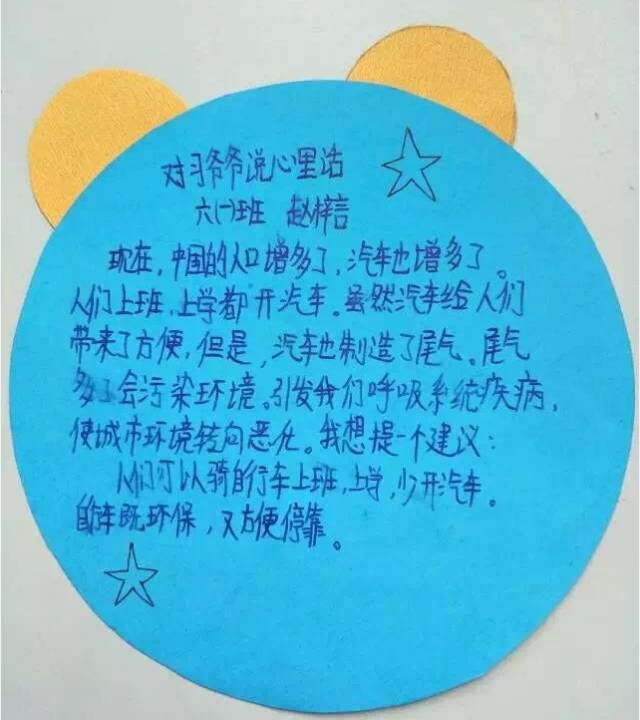 对习爷爷说心里话
六(1)班 赵梓言
现在，中国的人口增多了，汽车也增多了。
人们上班，上学都开汽车。虽然汽车给人们
带来了方便，但是，汽车也制造了尾气。尾气
多了会污染环境。引发我们呼吸系统疾病，
使城市环境转向恶化。我想提一个建议：
人们可以骑自行车上班，上学，少开汽车。
自行车既环保，又方便停靠。